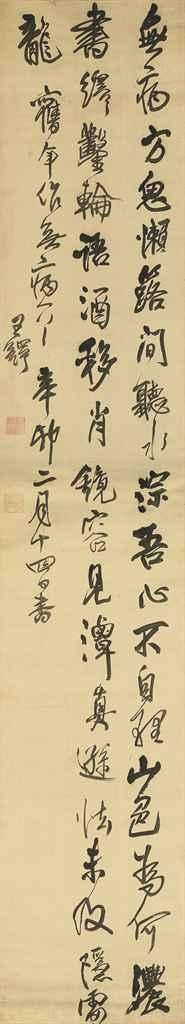 無病方懶間聽水淙吾心不自理山色為何濃
書繹鑿輪語酒移肖鏡容見潭真怯未收隱雷
龍 舊年作無病 辛卯二月十四日書
王鐸